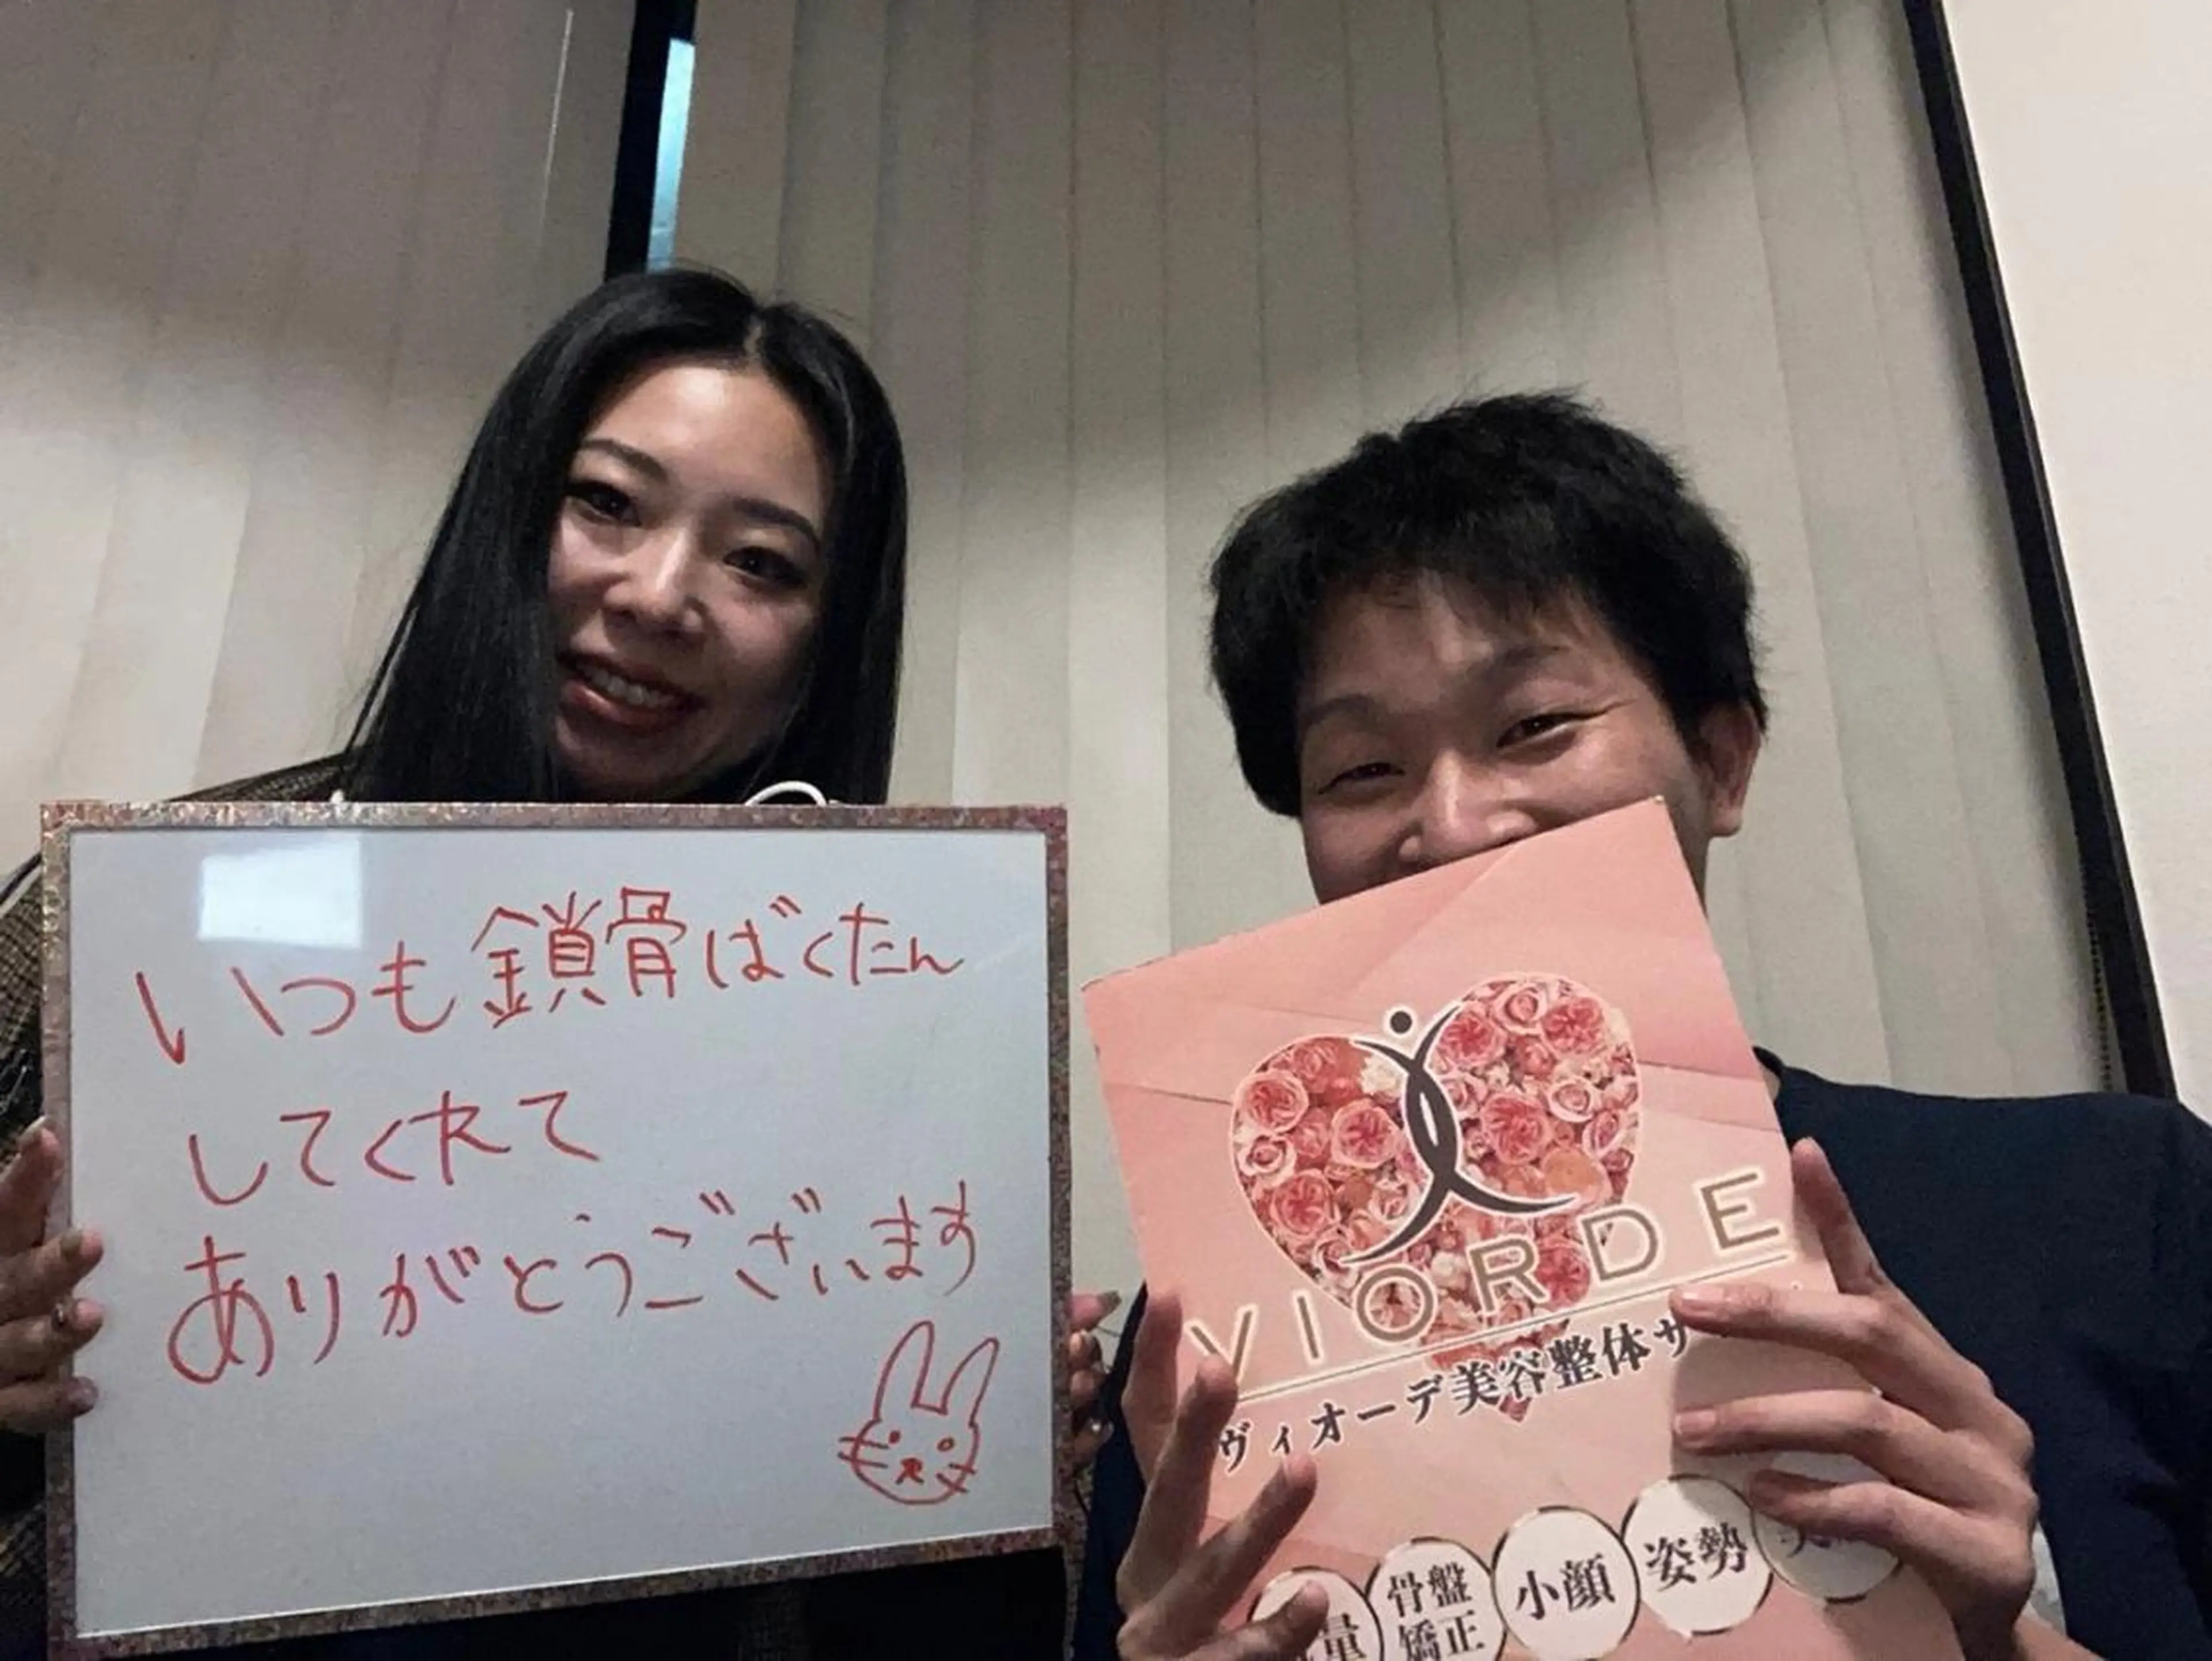 いつも鎖骨ばくたん
してくれて
ありがとうございます
VIORDE
ヴィオーデ美容整体サ
量
骨盤
矯正
小顔
姿勢